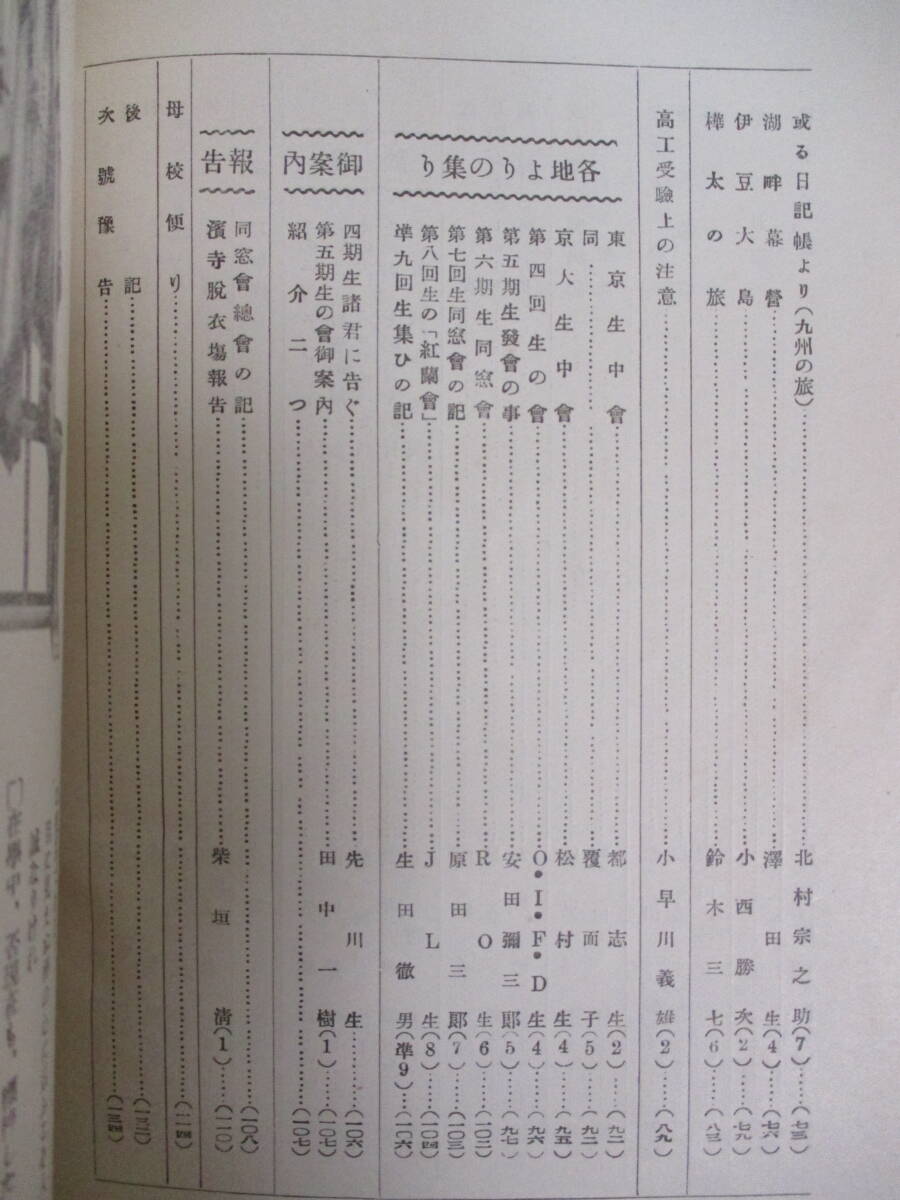 或る日記帳より(九州の旅)……北村宗之助(7)……(七三)
湖畔幕營……澤田生(4)……(七六)
伊豆大島……小西勝次(2)……(七九)
樺太の旅……鈴木三七(6)……(八三)
高工受驗上の注意……小早川義雄(2)……(八九)
各地よりの集り
東京生中會……都志生(2)……(九二)
同……覆面子(5)……(九二)
京大生中會……松村生(4)……(九五)
第四回生の會……O・I・F・D生(4)……(九六)
第五期生發會の事……安田彌三郎(5)……(九七)
第六期生同窓會……RO生(6)……(一〇二)
第七回生同窓會の記……原田三郎(7)……(一〇三)
第八回生の「紅蘭會」……JL生(8)……(一〇四)
準九回生集ひの記……生田徹男(準9)……(一〇六)
御案内
四期生諸君に告ぐ……先川生……(一〇六)
第五期生の會御案内……田中一樹(1)……(一〇七)
紹介二つ……(一〇七)
報告
同窓會總會の記……(一〇八)
濱寺脱衣塲報告……柴垣清(1)……(一一〇)
母校便り……(一一四)
後記……(一三三)
次號豫告……(一三四)